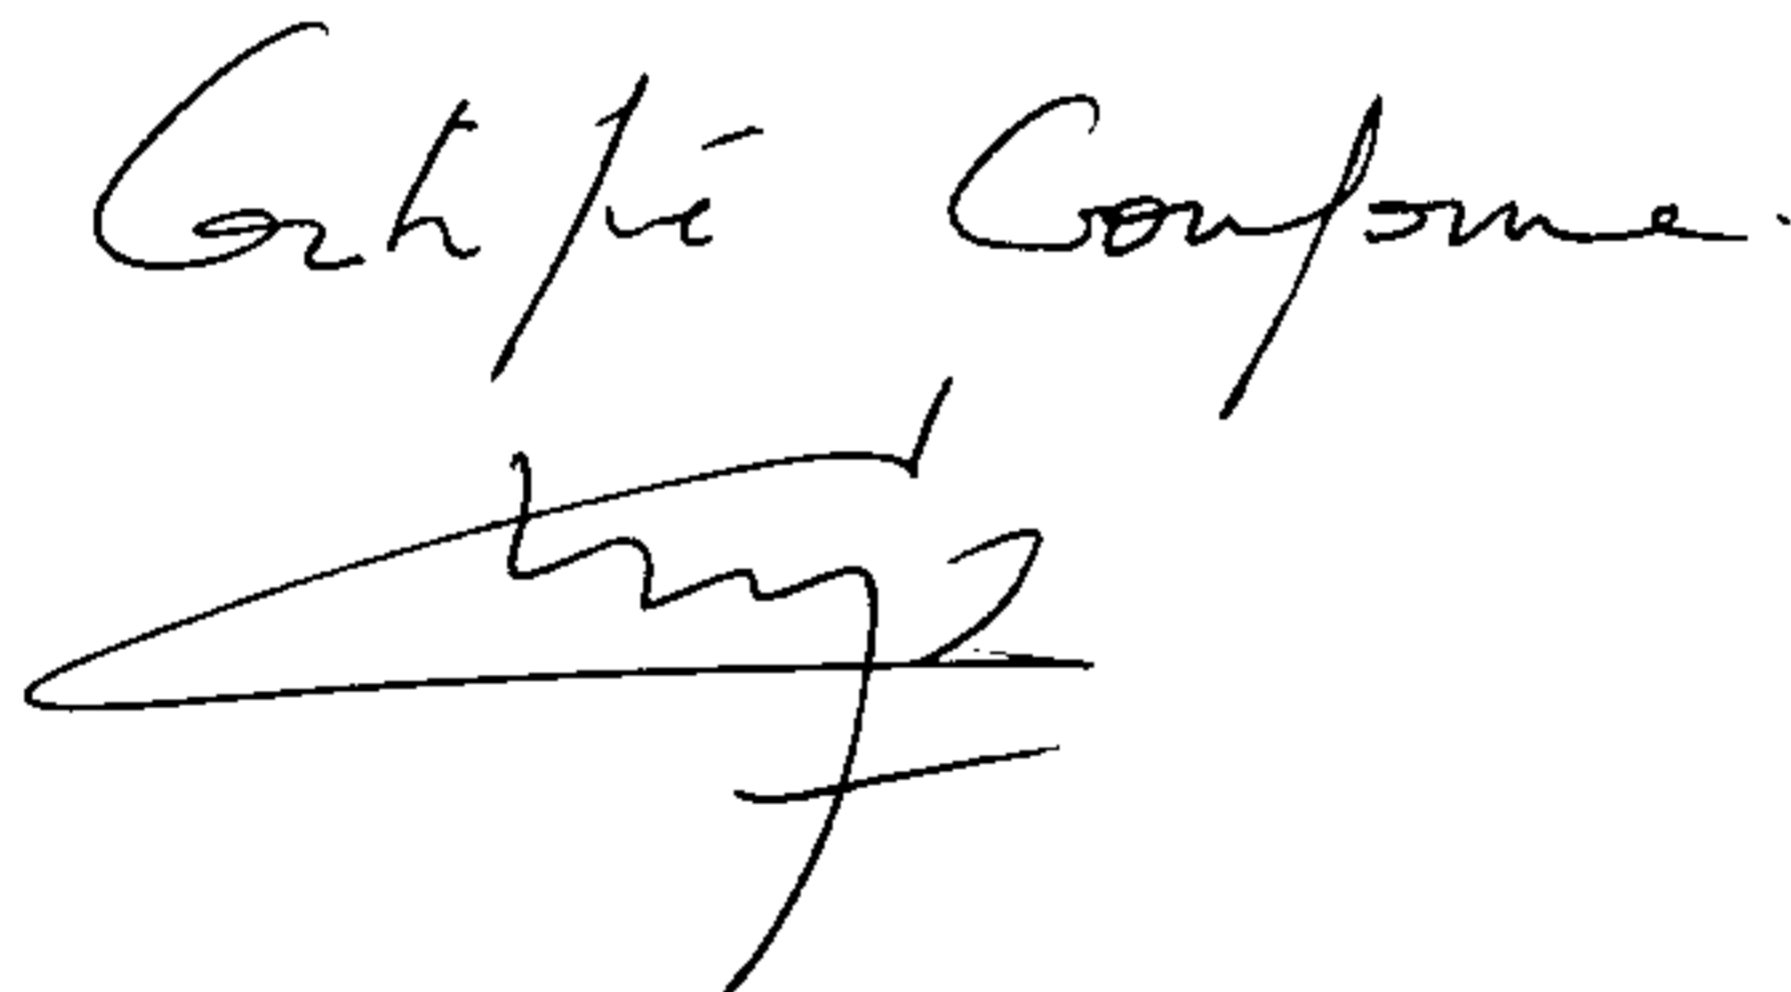 Certifié Conforme.